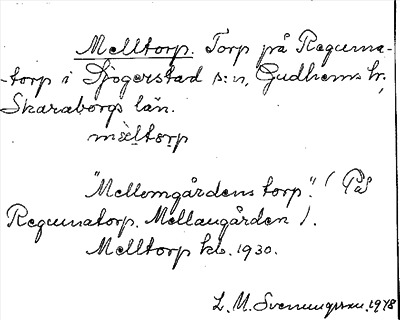 Melltorp. Torp på Reguma-
-torp i Sjogerstad s:n, Gudhems hr,
Skaraborgs län.
mæ̀ltɔrp
"Mellomgårdens torp". (På
Regumatorp. Mellangården).
Melltorp kb. 1930.
L. M. Svenungsson. 1948